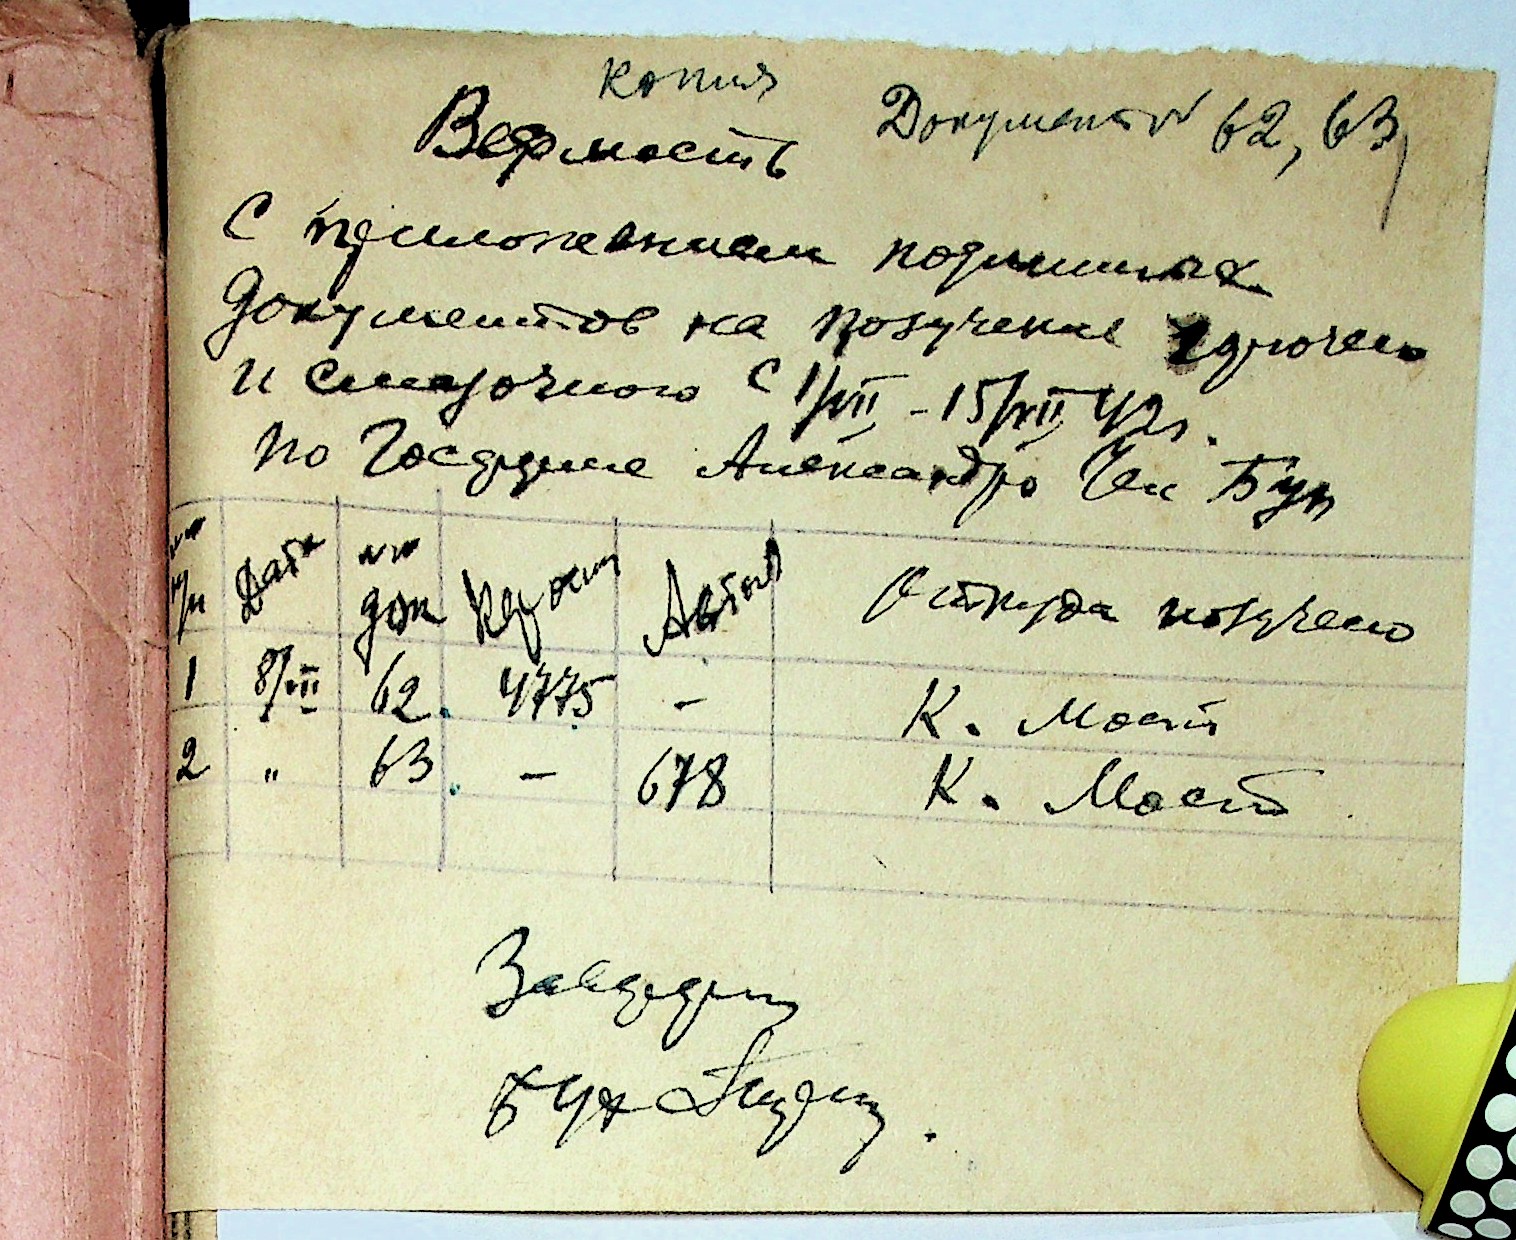 копия
Ведомость Документы 62, 63
С приложением подлинных
документов на получение горючего
и смазочного с 1/VII - 15/VII 42 г.
по Александро
№№ п/п Дата №№ док Керосин Автол Откуда получено
1 8/VII 62 4775 - К. Мост
2 " 63 - 678 К. Мост
Бух